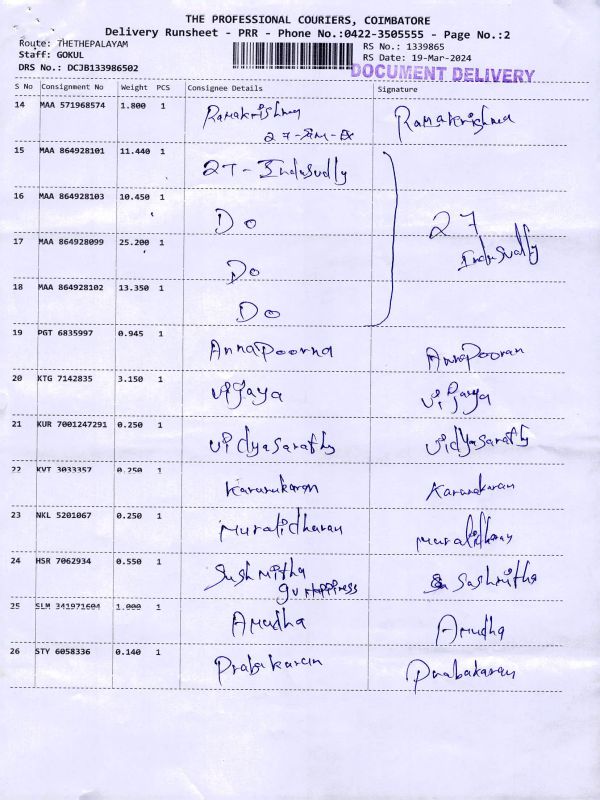 THE PROFESSIONAL COURIERS, COIMBATORE
Delivery Runsheet - PRR - Phone No.:0422-3505555 - Page No.:2
Route: THETHEPALAYAM
Staff: GOKUL
DRS No.: DCJB133986502
RS No.: 1339865
RS Date: 19-Mar-2024
DOCUMENT DELIVERY
S No Consignment No Weight PCS Consignee Details Signature
14 MAA 571968574 1.800 1 Ramakrishna Ramakrishna
27-
15 MAA 864928101 11.440 1 27-
16 MAA 864928103 10.450 1 Do 27
17 MAA 864928099 25.200 1 Do
18 MAA 864928102 13.350 1 Do
19 PGT 6835997 0.945 1 Annapoorna Annapooran
20 KTG 7142835 3.150 1 Vijaya Vijaya
21 KUR 7001247291 0.250 1 Vidyasarathy Vidyasarathy
22 KVT 3033357 0.250 1 Karunakaran Karunakaran
23 NKL 5201067 0.250 1 Muralidharan Muralidharan
24 HSR 7062934 0.550 1 Sushmitha Sashmitha
25 SLM 341971604 1.000 1 Amudha Amudha
26 STY 6058336 0.140 1 Prabakaran Prabakaran